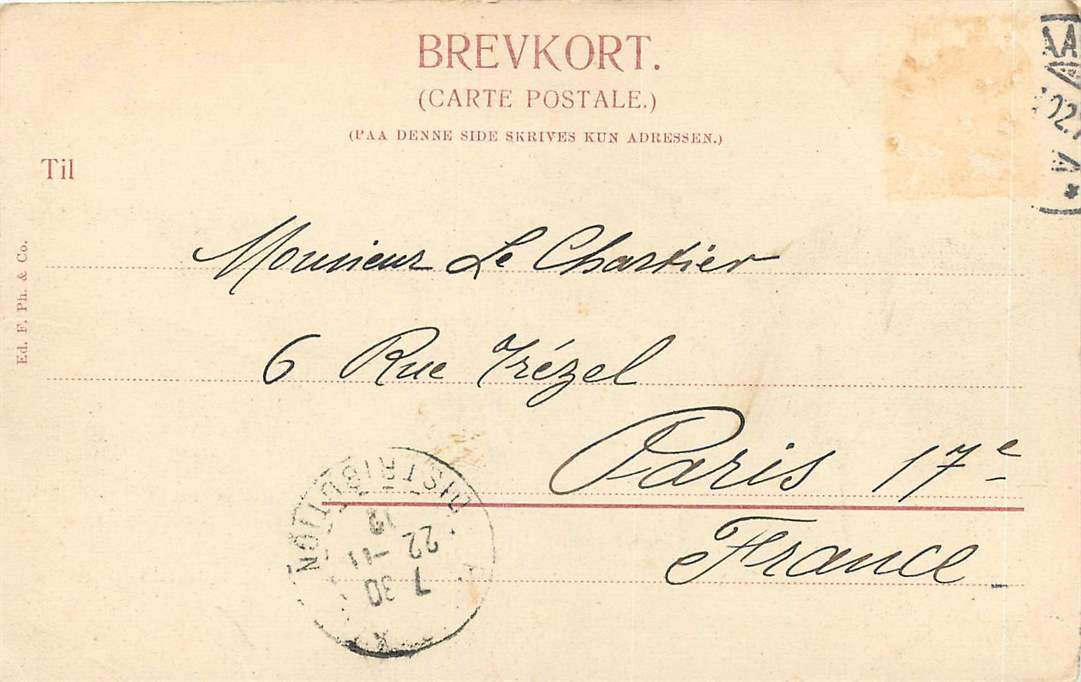 BREVKORT.
(CARTE POSTALE.)
(PAA DENNE SIDE SKRIVES KUN ADRESSEN.)
Til
Monsieur Le Chartier
6 Rue Trézel
Paris 17e
France
Ed. F. Ph. & Co.
DISTRIBUTION
7 30
22 - 11